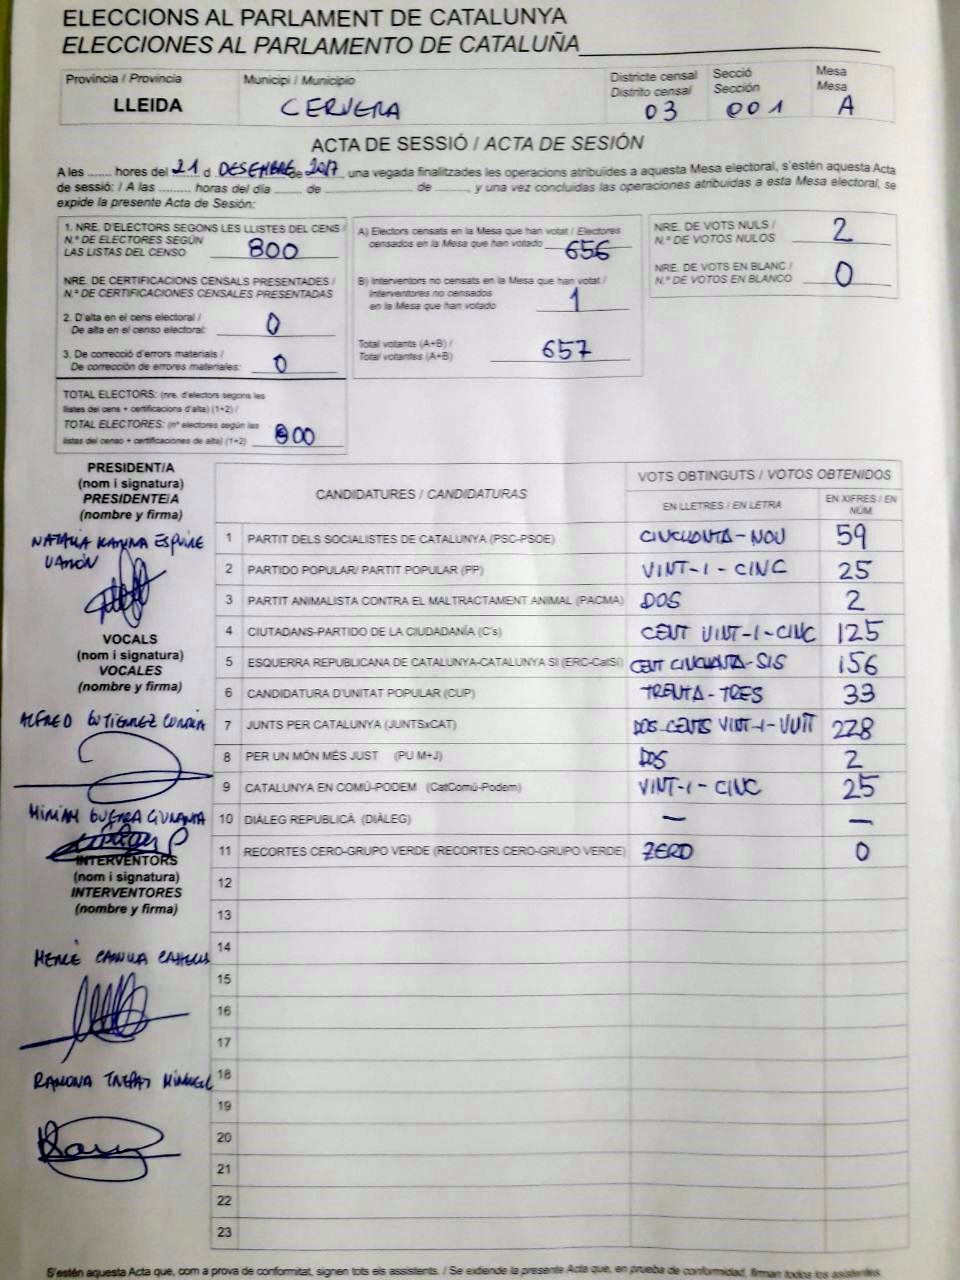 ELECCIONS AL PARLAMENT DE CATALUNYA
ELECCIONES AL PARLAMENTO DE CATALUÑA
Província / Provincia
LLEIDA
Municipi / Municipio
CERVERA
Districte censal
Distrito censal
03
Secció
Sección
001
Mesa
Mesa
A
ACTA DE SESSIÓ / ACTA DE SESIÓN
A les ....... hores del 21 d DESEMBRE de 2017, una vegada finalitzades les operacions atribuïdes a aquesta Mesa electoral, s'estén aquesta Acta
de sessió: / A las ......... horas del día ...... de .................. de ........., y una vez concluidas las operaciones atribuidas a esta Mesa electoral, se
expide la presente Acta de Sesión:
1. NRE. D'ELECTORS SEGONS LES LLISTES DEL CENS /
N.º DE ELECTORES SEGÚN
LAS LISTAS DEL CENSO 800
NRE. DE CERTIFICACIONS CENSALS PRESENTADES /
N.º DE CERTIFICACIONES CENSALES PRESENTADAS
2. D'alta en el cens electoral /
De alta en el censo electoral: 0
3. De correcció d'errors materials /
De corrección de errores materiales: 0
TOTAL ELECTORS: (nre. d'electors segons les
llistes del cens + certificacions d'alta) (1+2) /
TOTAL ELECTORES: (nº electores según las
listas del censo + certificaciones de alta) (1+2) 800
A) Electors censats en la Mesa que han votat / Electores
censados en la Mesa que han votado 656
B) Interventors no censats en la Mesa que han votat /
Interventores no censados
en la Mesa que han votado 1
Total votants (A+B) /
Total votantes (A+B) 657
NRE. DE VOTS NULS /
N.º DE VOTOS NULOS 2
NRE. DE VOTS EN BLANC /
N.º DE VOTOS EN BLANCO 0
PRESIDENT/A
(nom i signatura)
PRESIDENTE/A
(nombre y firma)
NATALIA KARINA
VOCALS
(nom i signatura)
VOCALES
(nombre y firma)
ALFREDO GUTIERREZ
MIRIAM GUERRA
INTERVENTORS
(nom i signatura)
INTERVENTORES
(nombre y firma)
MERCÈ
RAMONA
CANDIDATURES / CANDIDATURAS
VOTS OBTINGUTS / VOTOS OBTENIDOS
EN LLETRES / EN LETRA
EN XIFRES / EN
NÚM.
1 PARTIT DELS SOCIALISTES DE CATALUNYA (PSC-PSOE) CINCUANTA-NOU 59
2 PARTIDO POPULAR/ PARTIT POPULAR (PP) VINT-I-CINC 25
3 PARTIT ANIMALISTA CONTRA EL MALTRACTAMENT ANIMAL (PACMA) DOS 2
4 CIUTADANS-PARTIDO DE LA CIUDADANÍA (C's) CENT VINT-I-CINC 125
5 ESQUERRA REPUBLICANA DE CATALUNYA-CATALUNYA SÍ (ERC-CatSí) CENT CINCUANTA-SIS 156
6 CANDIDATURA D'UNITAT POPULAR (CUP) TRENTA-TRES 33
7 JUNTS PER CATALUNYA (JUNTSxCAT) DOS-CENTS VINT-I-VUIT 228
8 PER UN MÓN MÉS JUST (PU M+J) DOS 2
9 CATALUNYA EN COMÚ-PODEM (CatComú-Podem) VINT-I-CINC 25
10 DIÀLEG REPUBLICÀ (DIÀLEG) — —
11 RECORTES CERO-GRUPO VERDE (RECORTES CERO-GRUPO VERDE) ZERO 0
12
13
14
15
16
17
18
19
20
21
22
23
S'estén aquesta Acta que, com a prova de conformitat, signen tots els assistents. / Se extiende la presente Acta que, en prueba de conformidad, firman todos los asistentes.